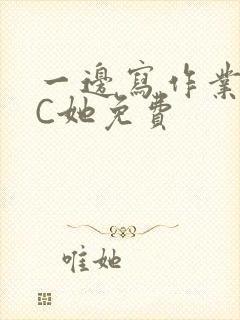 一邊寫作業
C她免費
唯她